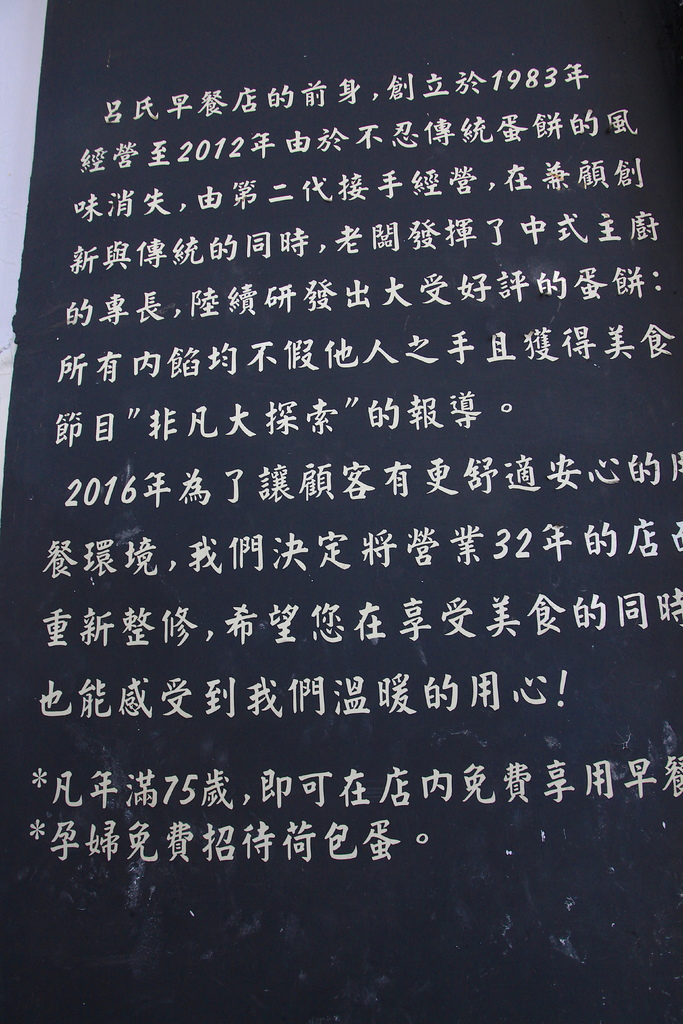 呂氏早餐店的前身,創立於1983年
經營至2012年由於不忍傳統蛋餅的風
味消失,由第二代接手經營,在兼顧創
新與傳統的同時,老闆發揮了中式主廚
的專長,陸續研發出大受好評的蛋餅:
所有內餡均不假他人之手且獲得美食
節目"非凡大探索"的報導。
2016年為了讓顧客有更舒適安心的用
餐環境,我們決定將營業32年的店面
重新整修,希望您在享受美食的同時
也能感受到我們溫暖的用心!
*凡年滿75歲,即可在店內免費享用早餐
*孕婦免費招待荷包蛋。